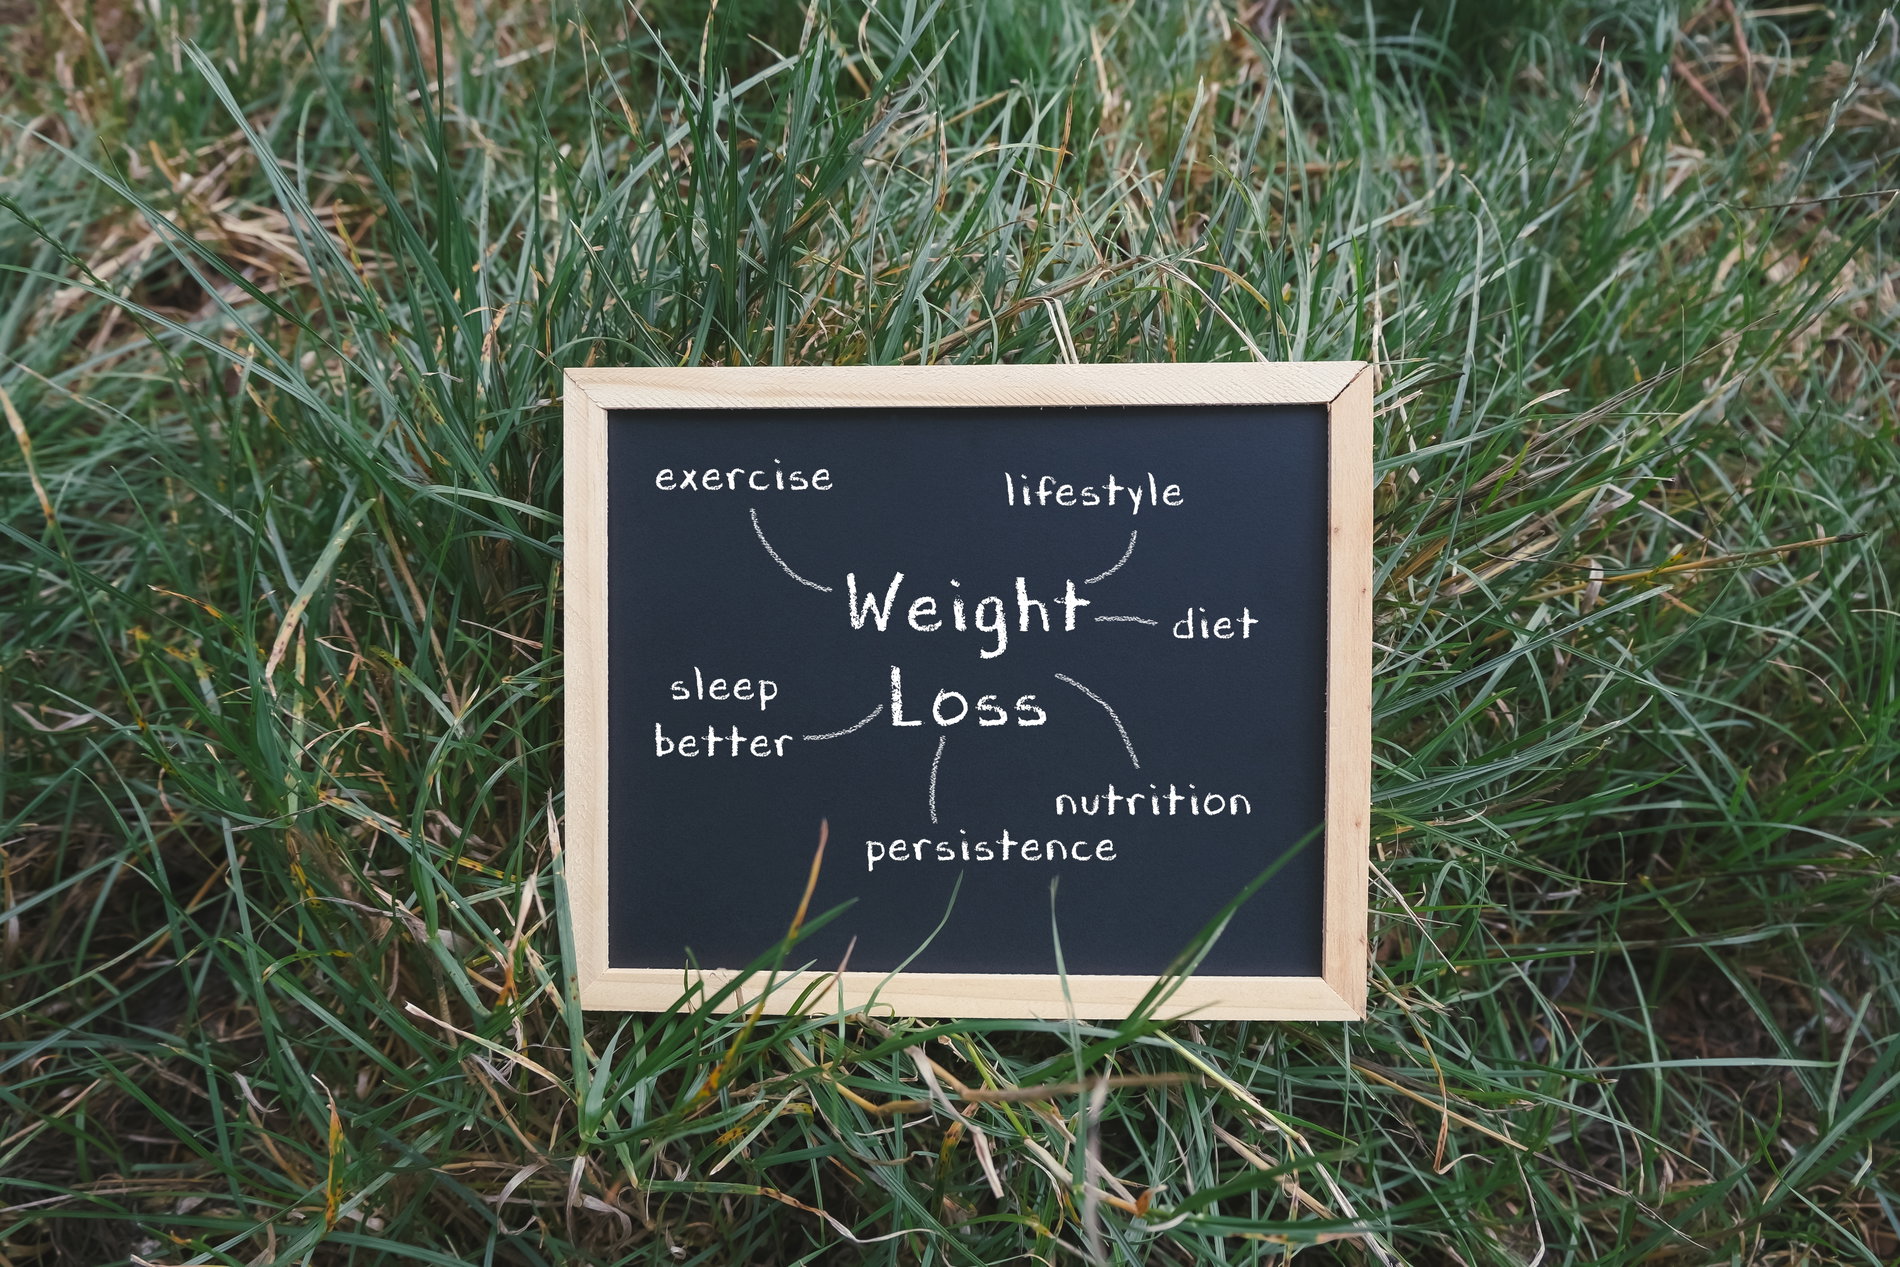 exercise
lifestyle
Weight
diet
Loss
sleep
better
nutrition
persistence